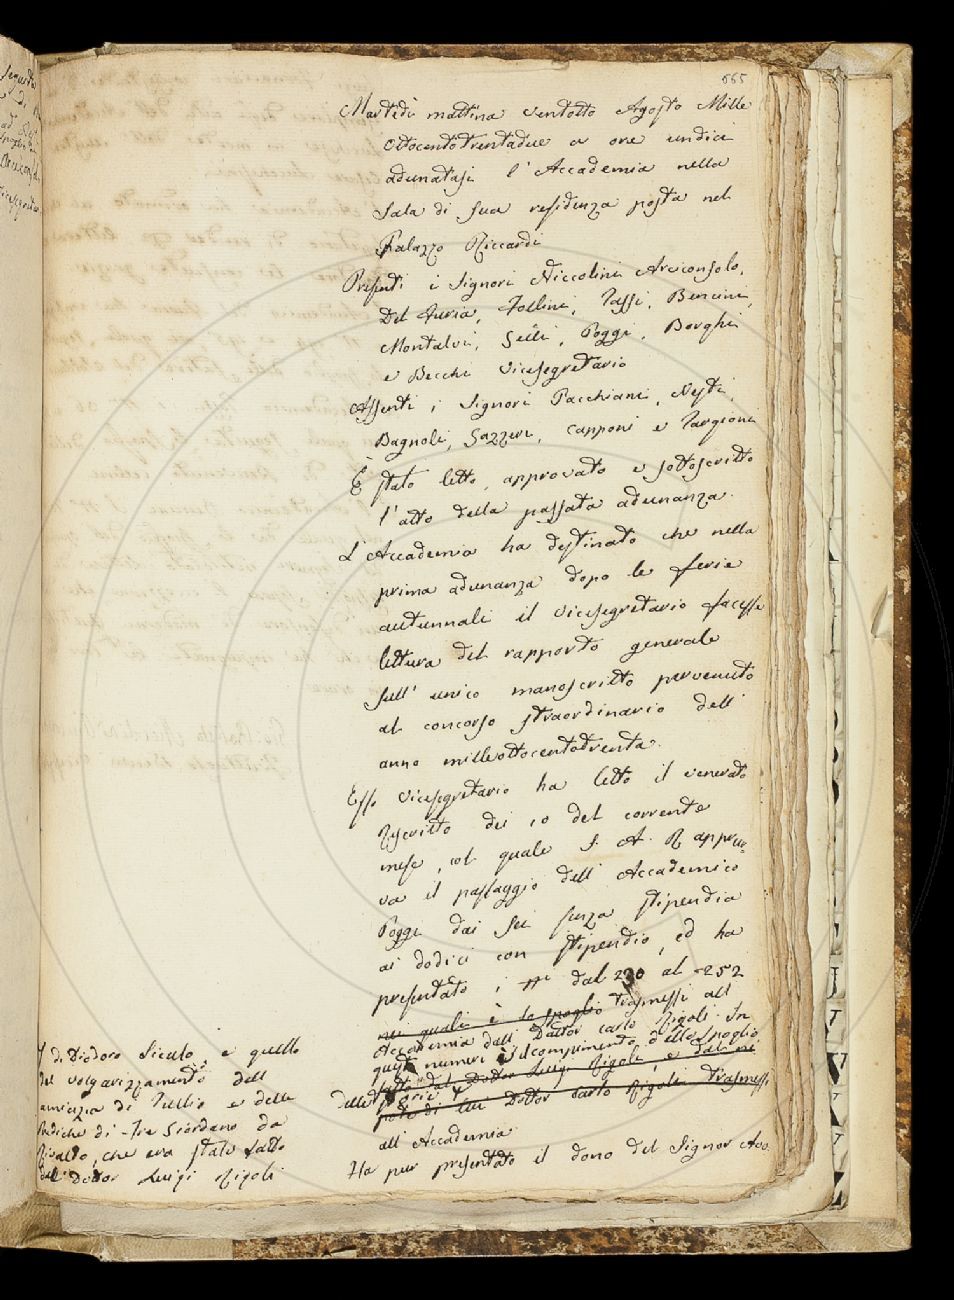 665
Martedì mattina ventotto Agosto Mille
ottocentotrentadue a ore undici
adunatasi l'Accademia nella
Sala di sua residenza posta nel
Palazzo Riccardi
Presenti i Signori Niccolini Arciconsolo,
Del Furia, Follini, Tassi, Bencini,
Montalvi, Poggi, Borghi
e Becchi Vicesegretario
Assenti i Signori Pacchiani, Nesti,
Bagnoli, Gazzeri, Capponi e Targioni
È stato letto, approvato e sottoscritto
l'atto della passata adunanza.
L'Accademia ha destinato che nella
prima adunanza dopo le ferie
autunnali il vicesegretario facesse
lettura del rapporto generale
sull'unico manoscritto pervenuto
al concorso straordinario dell'
anno milleottocentotrenta.
Esso Vicesegretario ha letto il venerato
Rescritto dei 10 del corrente
mese, col quale S. A. R. appro=
va il passaggio dell'Accademico
Poggi dai sei senza stipendio
ai dodici con stipendio, ed ha
presentato i nri dal 230 al 252
nei quali è lo spoglio trasmessi all'
Accademia dall Dottor Carlo Rigoli. In
questi numeri è il compimento dello Spoglio
fatto dal Dottor Luigi Rigoli, e dal ni
delle Storie
pote di lui Dottor Carlo Rigoli trasmessi
all'Accademia
Ha pur presentato il dono del Signor Avv.
di Diodoro Siculo, e quello
del volgarizzamento dell'
amicizia di Tullio e delle
Prediche di Fra Giordano da
Rivalto, che era stato fatto
dal Dottor Luigi Rigoli